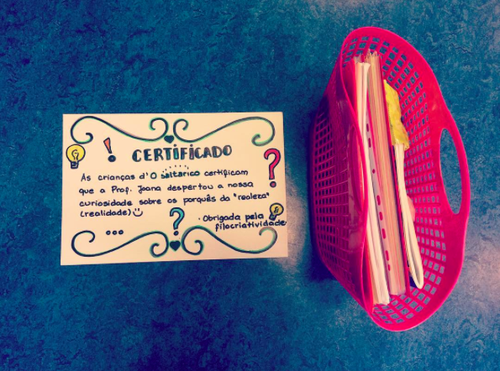 CERTIFICADO
As crianças d'O saltarico certificam
que a Prof. Joana despertou a nossa
curiosidade sobre os porquês da "realeza"
(realidade)
• Obrigada pela
filocriatividade
...